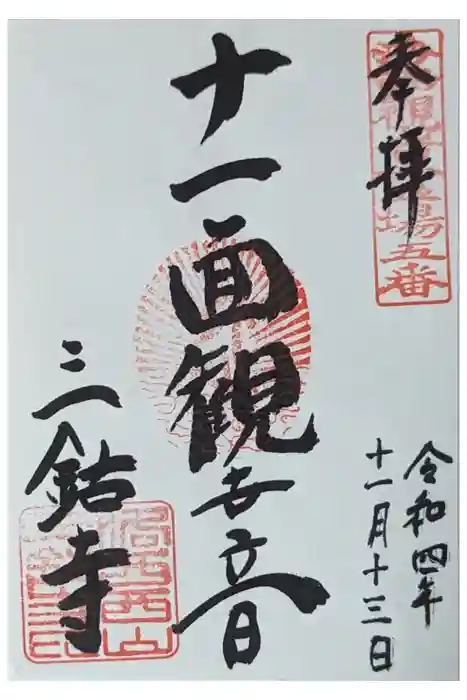 奉拝
観音霊場五番
令和四年
十一月十三日
十一面観世音
三鈷寺